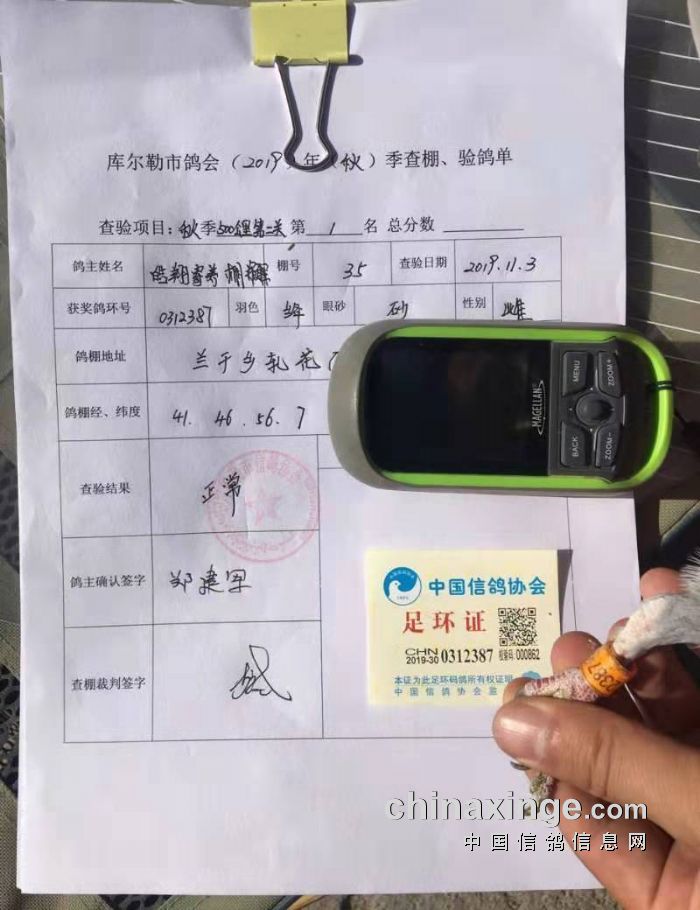 库尔勒市鸽会（2019）年（秋）季查棚、验鸽单
查验项目：秋季500浬第二关 第 1 名 总分数
鸽主姓名 棚号 35 查验日期 2019.11.3
获奖鸽环号 0312387 羽色 绛 眼砂 砂 性别 雌
鸽棚地址 兰干乡轧花
鸽棚经、纬度 41. 46. 56. 7
查验结果 正常
鸽主确认签字 郑建军
查棚裁判签字
MAGELLAN
MENU
ZOOM+
BACK
ZOOM-
中国信鸽协会
足环证
CHN
2019-30 0312387 000862
本证为此足环码鸽所有权证明
中国信鸽协会监
7387
chinaxinge.com
中国信鸽信息网